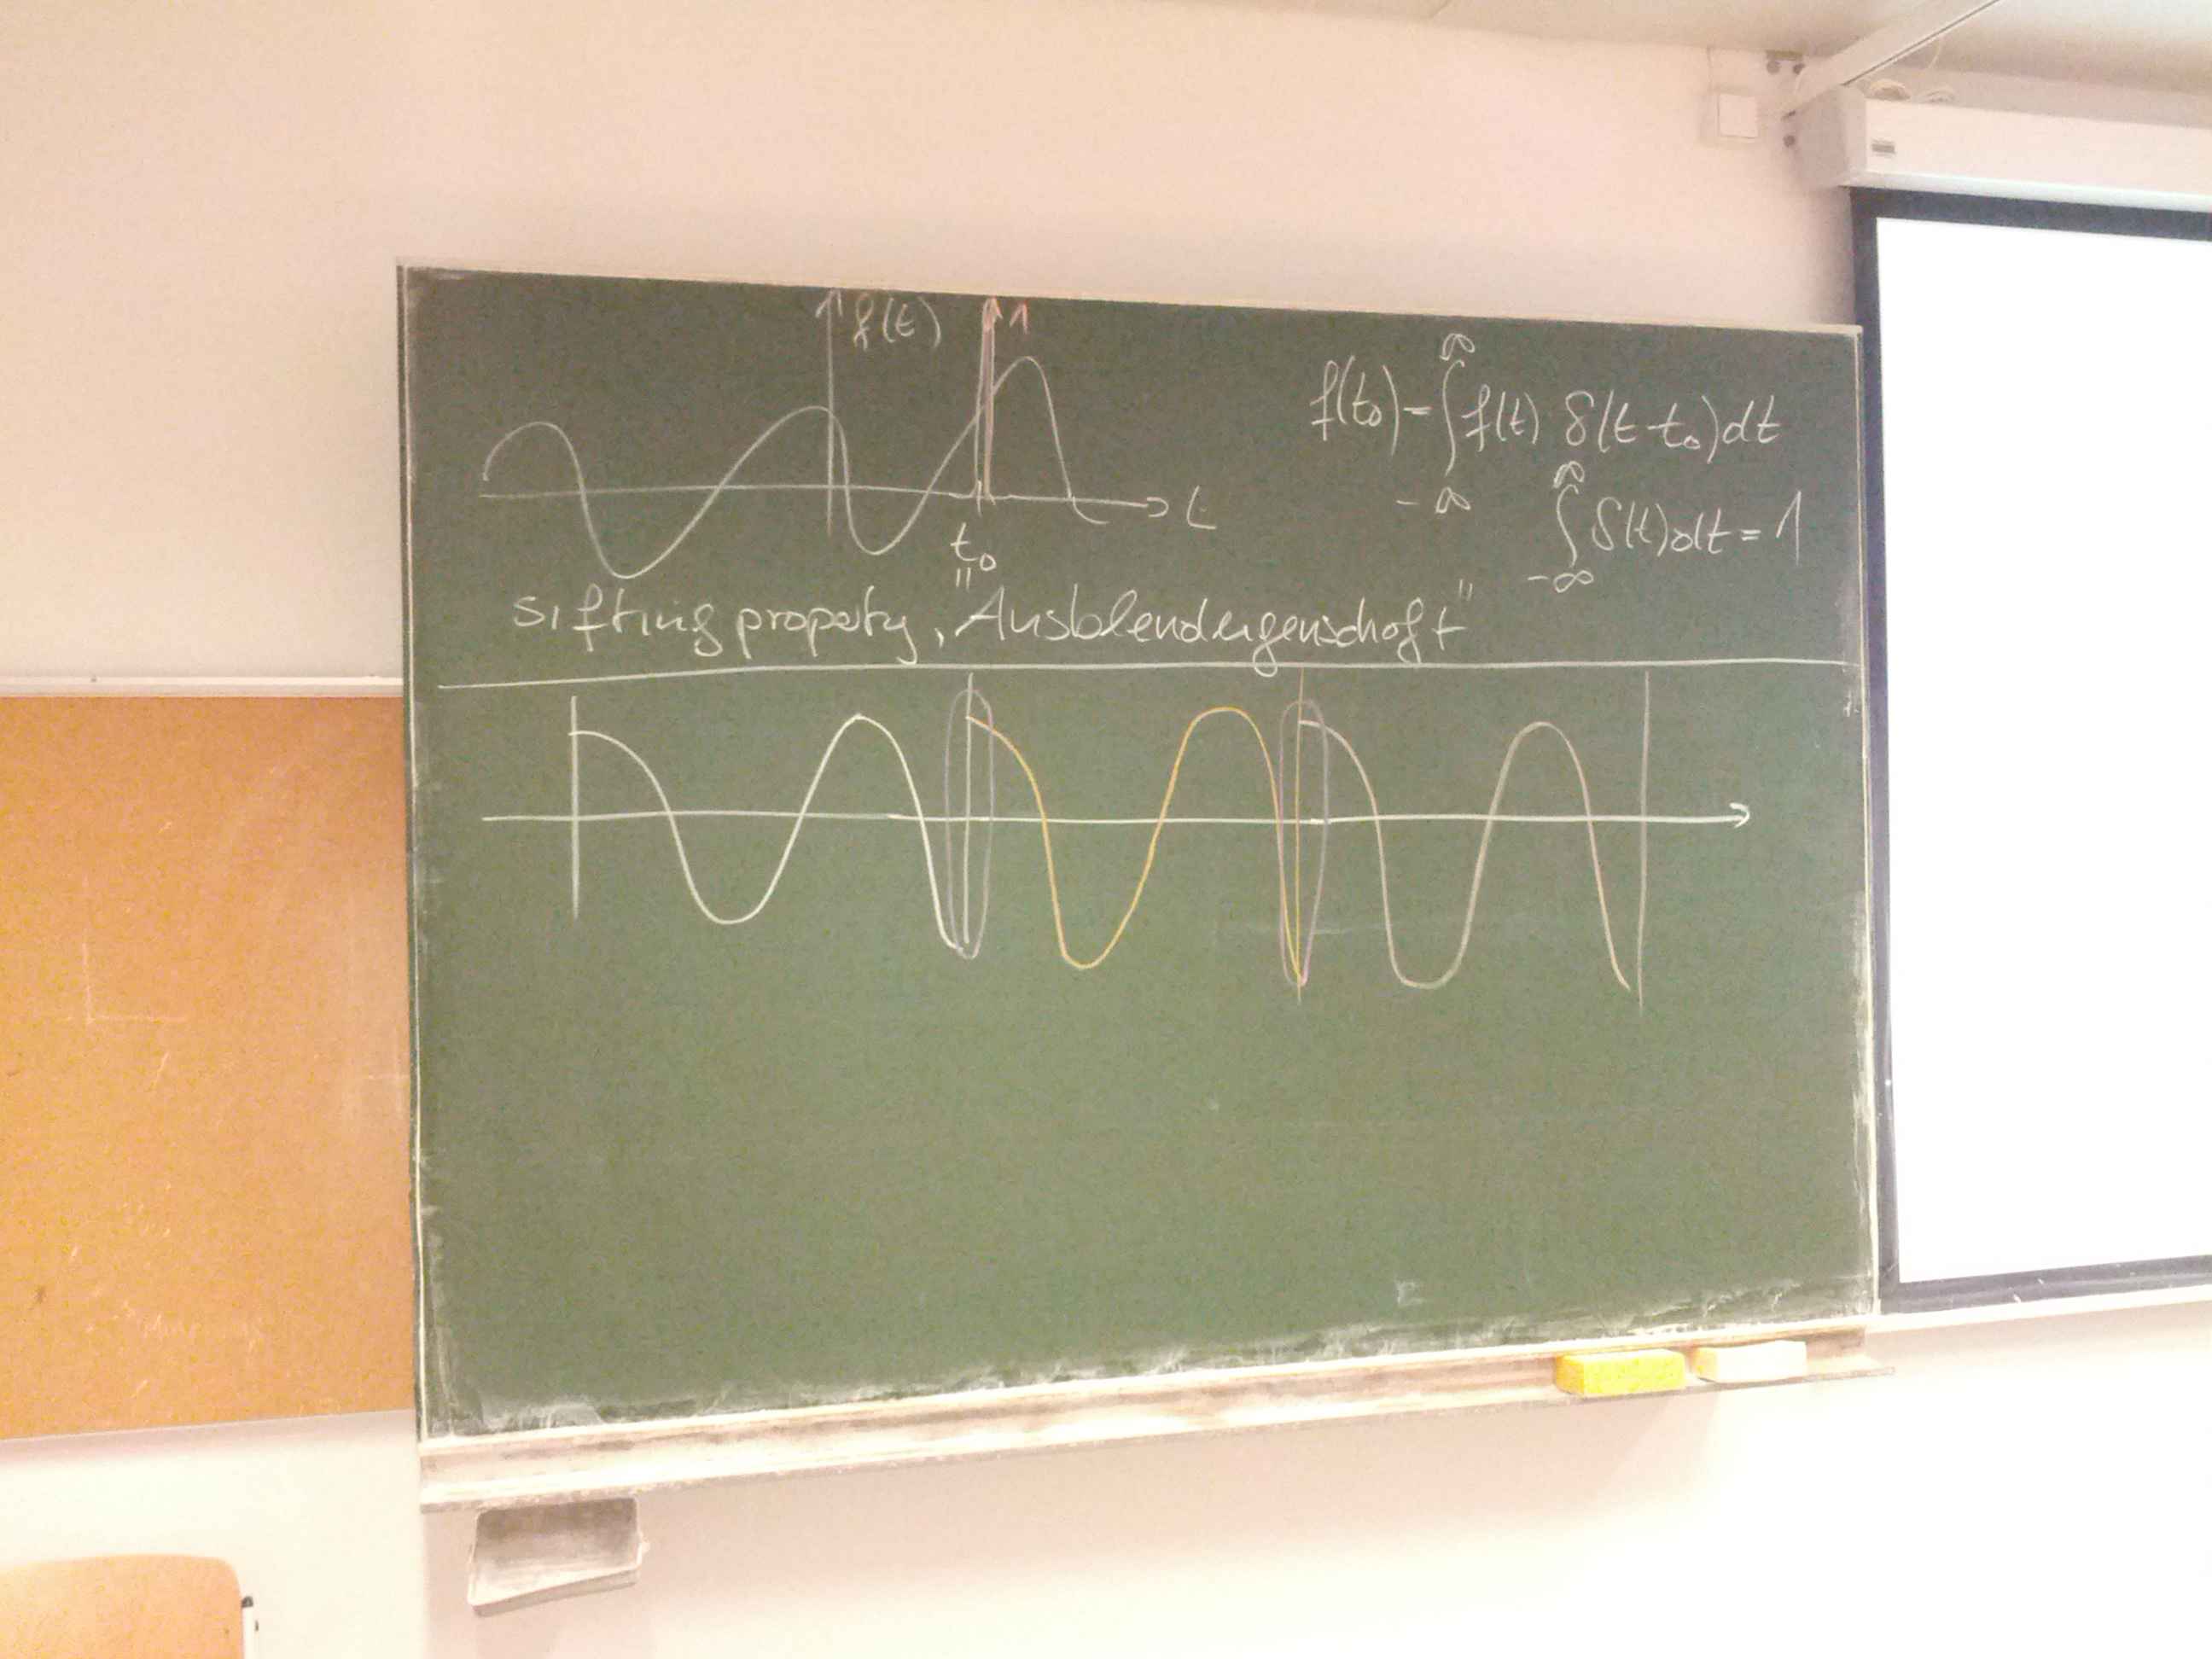 f(t) 1
f(t₀) = ∫ f(t) δ(t-t₀) dt
∞
-∞
t
t₀
∫ δ(t) dt = 1
∞
-∞
sifting property, "Ausblendeigenschaft"